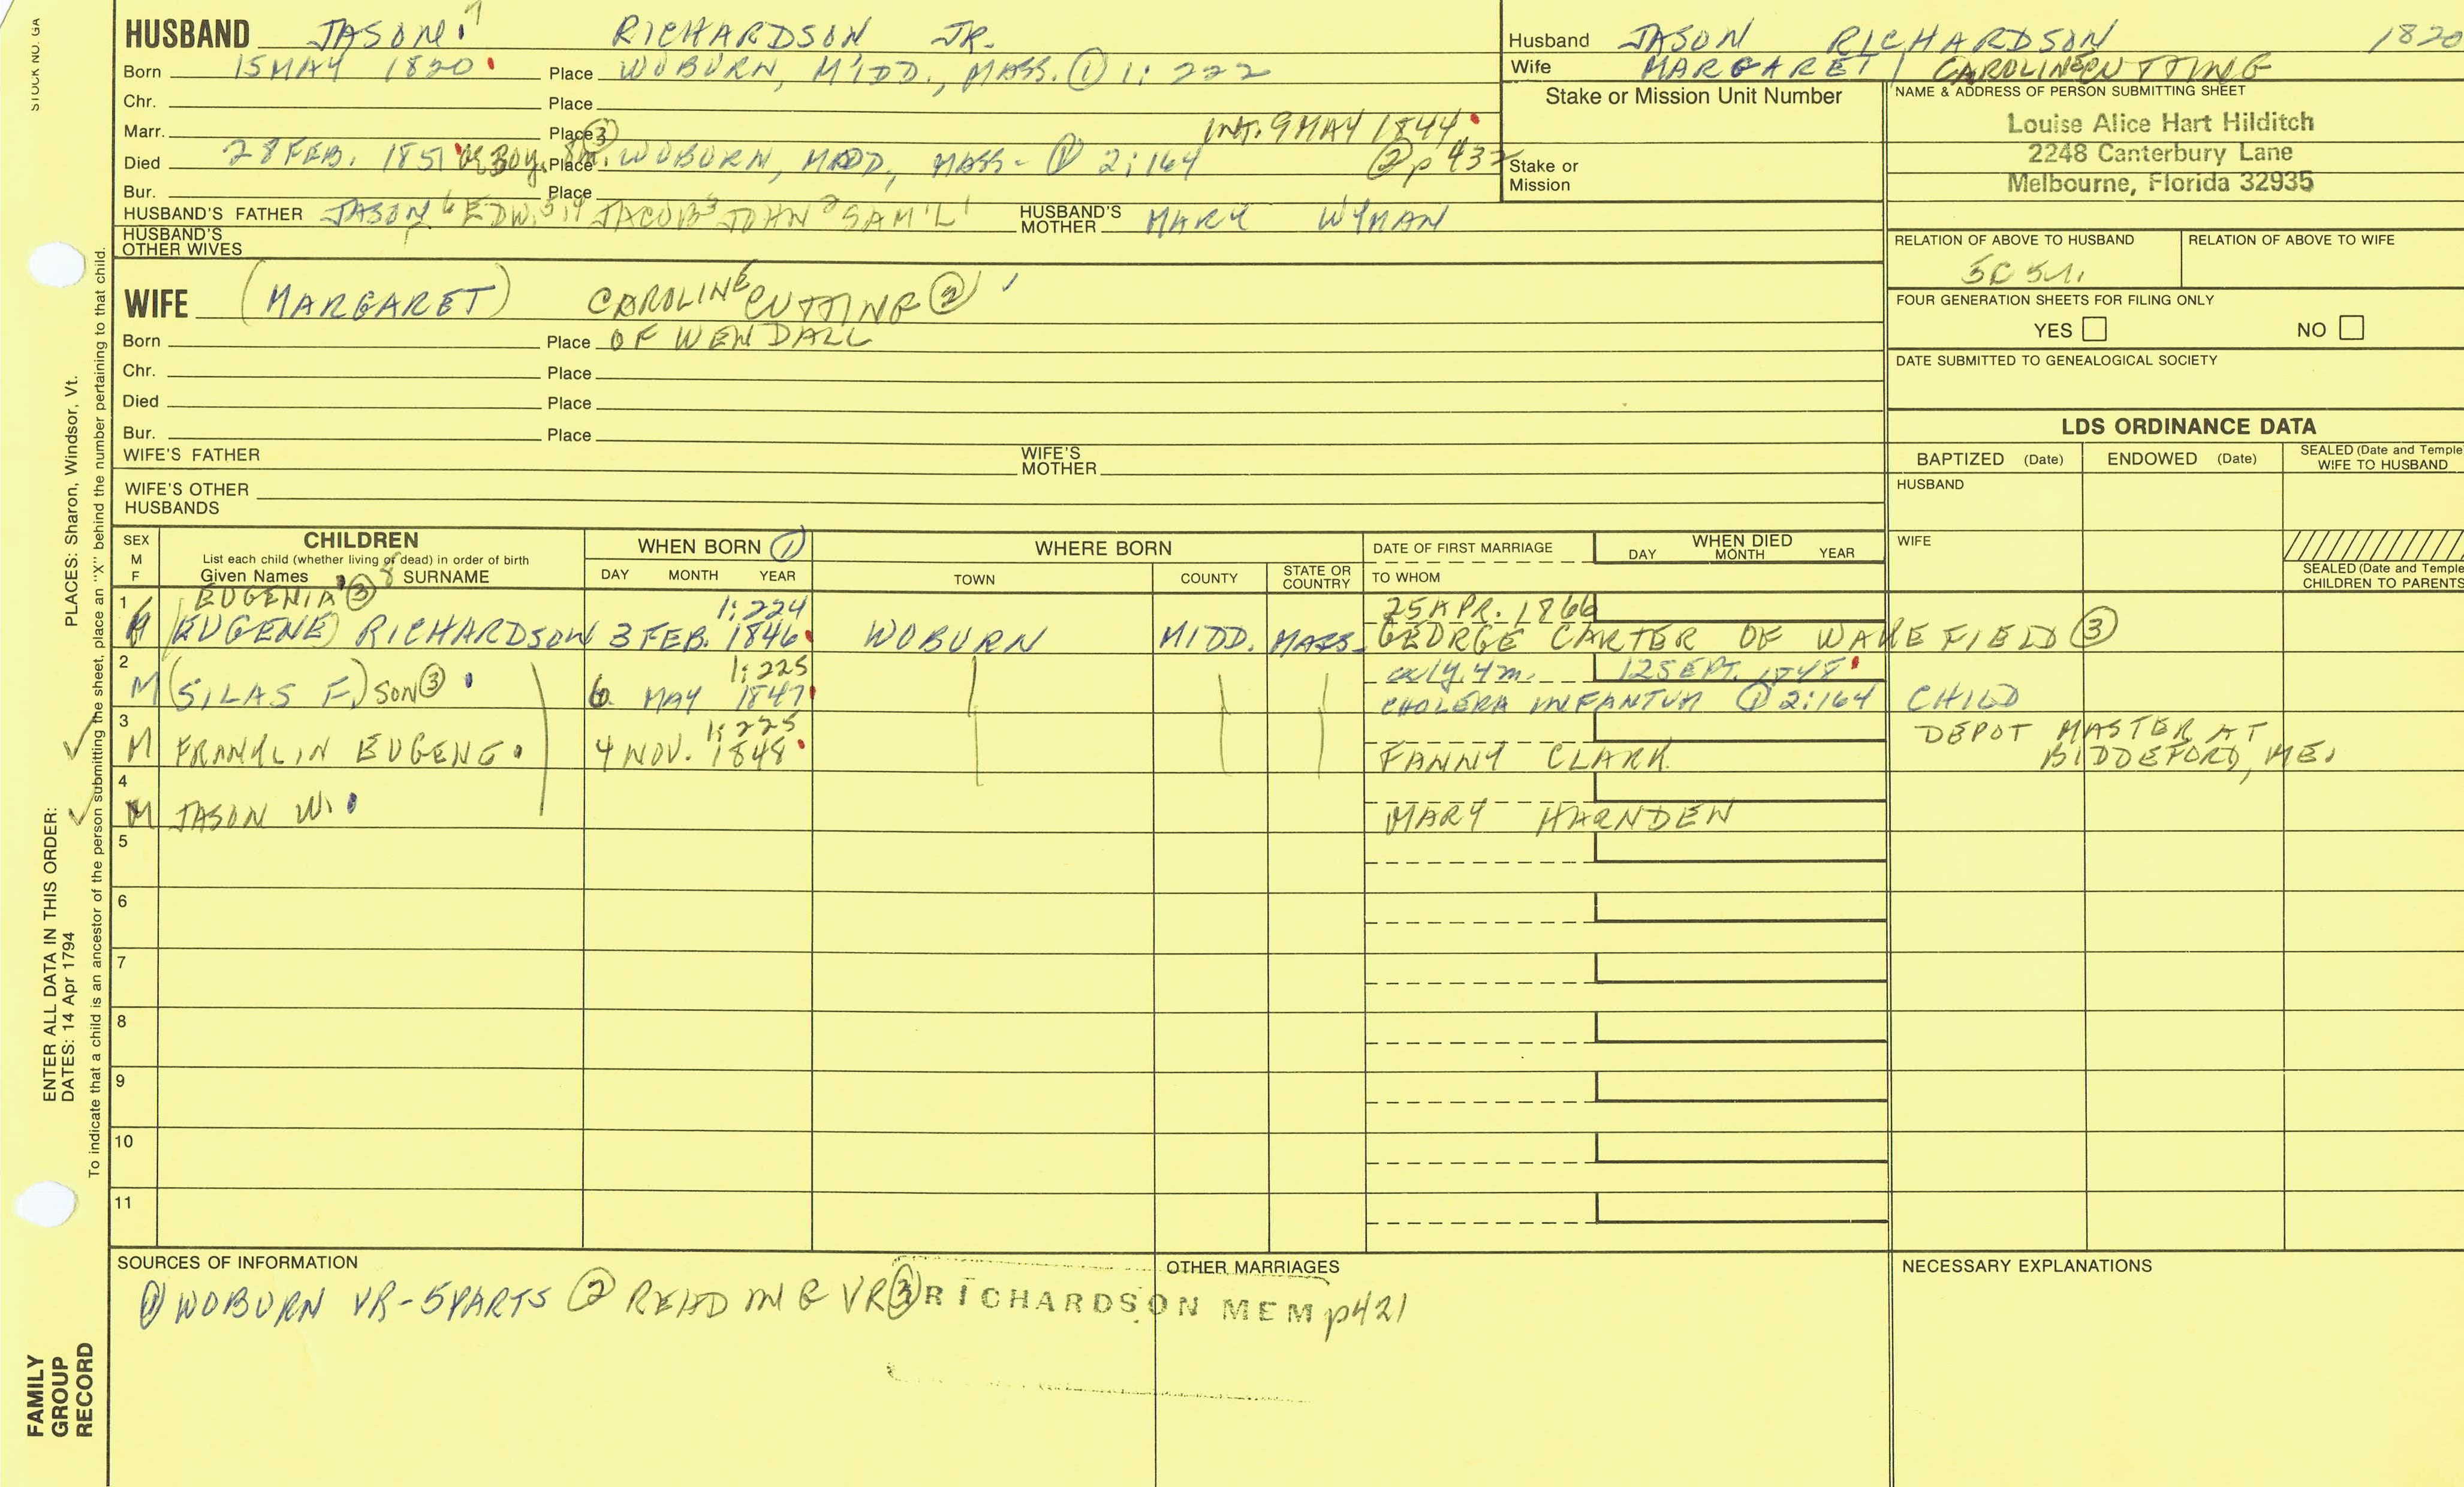 STOCK NO. GA
HUSBAND JASON 7 RICHARDSON JR.
Born 15 MAY 1820 Place WOBURN, MIDD., MASS. ① 1: 222
Chr. Place
Marr. Place ③ INT. 9 MAY 1844
Died 28 FEB. 1851 Place WOBURN, MIDD., MASS - ① 2:164 ② p 432
Bur. Place
HUSBAND'S FATHER JASON 6 EDW. 5, 4 JACOB 3 JOHN 2 SAM'L 1 HUSBAND'S MOTHER MARY WYMAN
HUSBAND'S OTHER WIVES
Husband JASON RICHARDSON 1820
Wife MARGARET CAROLINE CUTTING
Stake or Mission Unit Number
Stake or Mission
NAME & ADDRESS OF PERSON SUBMITTING SHEET
Louise Alice Hart Hilditch
2248 Canterbury Lane
Melbourne, Florida 32935
RELATION OF ABOVE TO HUSBAND RELATION OF ABOVE TO WIFE
5C 5
FOUR GENERATION SHEETS FOR FILING ONLY
YES NO
DATE SUBMITTED TO GENEALOGICAL SOCIETY
WIFE (MARGARET) CAROLINE CUTTING ②
Born Place OF WENDALL
Chr. Place
Died Place
Bur. Place
WIFE'S FATHER WIFE'S MOTHER
WIFE'S OTHER HUSBANDS
LDS ORDINANCE DATA
BAPTIZED (Date) ENDOWED (Date) SEALED (Date and Temple) WIFE TO HUSBAND
HUSBAND
WIFE
SEALED (Date and Temple) CHILDREN TO PARENTS
SEX M F
CHILDREN
List each child (whether living or dead) in order of birth
Given Names 8 SURNAME
WHEN BORN ①
DAY MONTH YEAR
WHERE BORN
TOWN COUNTY STATE OR COUNTRY
DATE OF FIRST MARRIAGE
TO WHOM
WHEN DIED
DAY MONTH YEAR
1 EUGENIA ③ 1: 224 25 APR. 1866
(EUGENE) RICHARDSON 3 FEB. 1846 WOBURN MIDD. MASS. GEORGE CARTER OF WAKEFIELD ③
2 1: 225 12 SEPT. 1848
M (SILAS F.) SON ③ 6 MAY 1847 CHOLERA INFANTUM ① 2:164 CHILD
3 1: 225 DEPOT MASTER AT
M FRANKLIN EUGENE 4 NOV. 1848 FANNY CLARK BIDDEFORD, ME.
4
M JASON W. MARY HARNDEN
5
6
7
8
9
10
11
SOURCES OF INFORMATION
① WOBURN VR - 5 PARTS ② READING VR ③ RICHARDSON MEM p421
OTHER MARRIAGES
NECESSARY EXPLANATIONS
PLACES: Sharon, Windsor, Vt.
ENTER ALL DATA IN THIS ORDER:
DATES: 14 Apr 1794
To indicate that a child is an ancestor of the person submitting the sheet, place an "X" behind the number pertaining to that child.
FAMILY
GROUP
RECORD